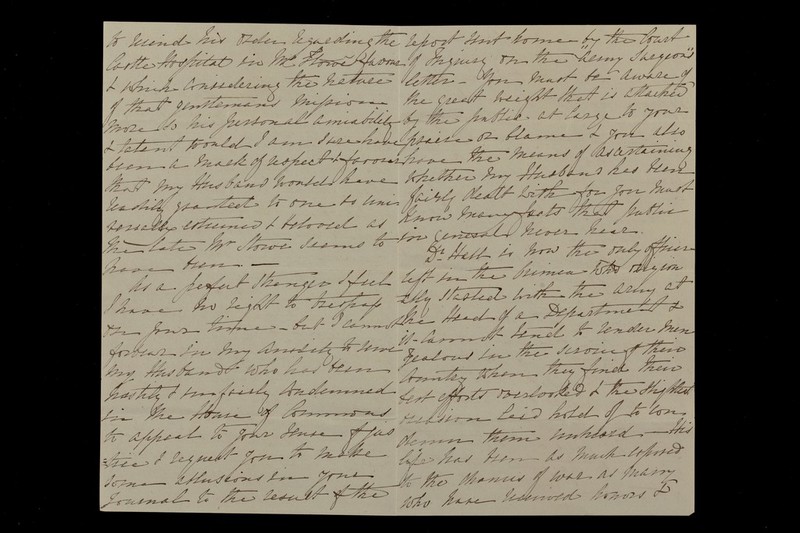 to rescind his order regarding the
Castle Hospital in Mr. Stowe's favor
& which considering the nature
of that gentleman's mission
more so his personal amiability
& talent would I am sure have
been a mark of respect & favor
that my Husband would have
readily granted to one so uni
versally esteemed & beloved as
the late Mr Stowe seems to
have been. —
As a perfect stranger I feel
I have no right to trespass
on your time — but I cannot
forbear in my anxiety to serve
my Husband who has been
hastily & unfairly condemned
in the House of Commons
to appeal to your sense of jus
tice & request you to make
some allusions in your
Journal to the result of the
report sent home by the Court
of Inquiry on the "Army Surgeon's"
letter — You must be aware of
the great weight that is attached
by the public at large to your
praise or blame & you also
have the means of ascertaining
whether my Husband has been
fairly dealt with for you must
know many facts that public
in general never hear.
Dr. Hall is now the only officer
left in the Crimea who origin
ally started with the army at
the Head of a Department &
it cannot tend to render men
zealous in the service of their
Country when they find their
best efforts overlooked & the slightest
occasion laid hold of to con
demn them unheard — His
life has been as much exposed
to the chances of war as many
who have received honors &